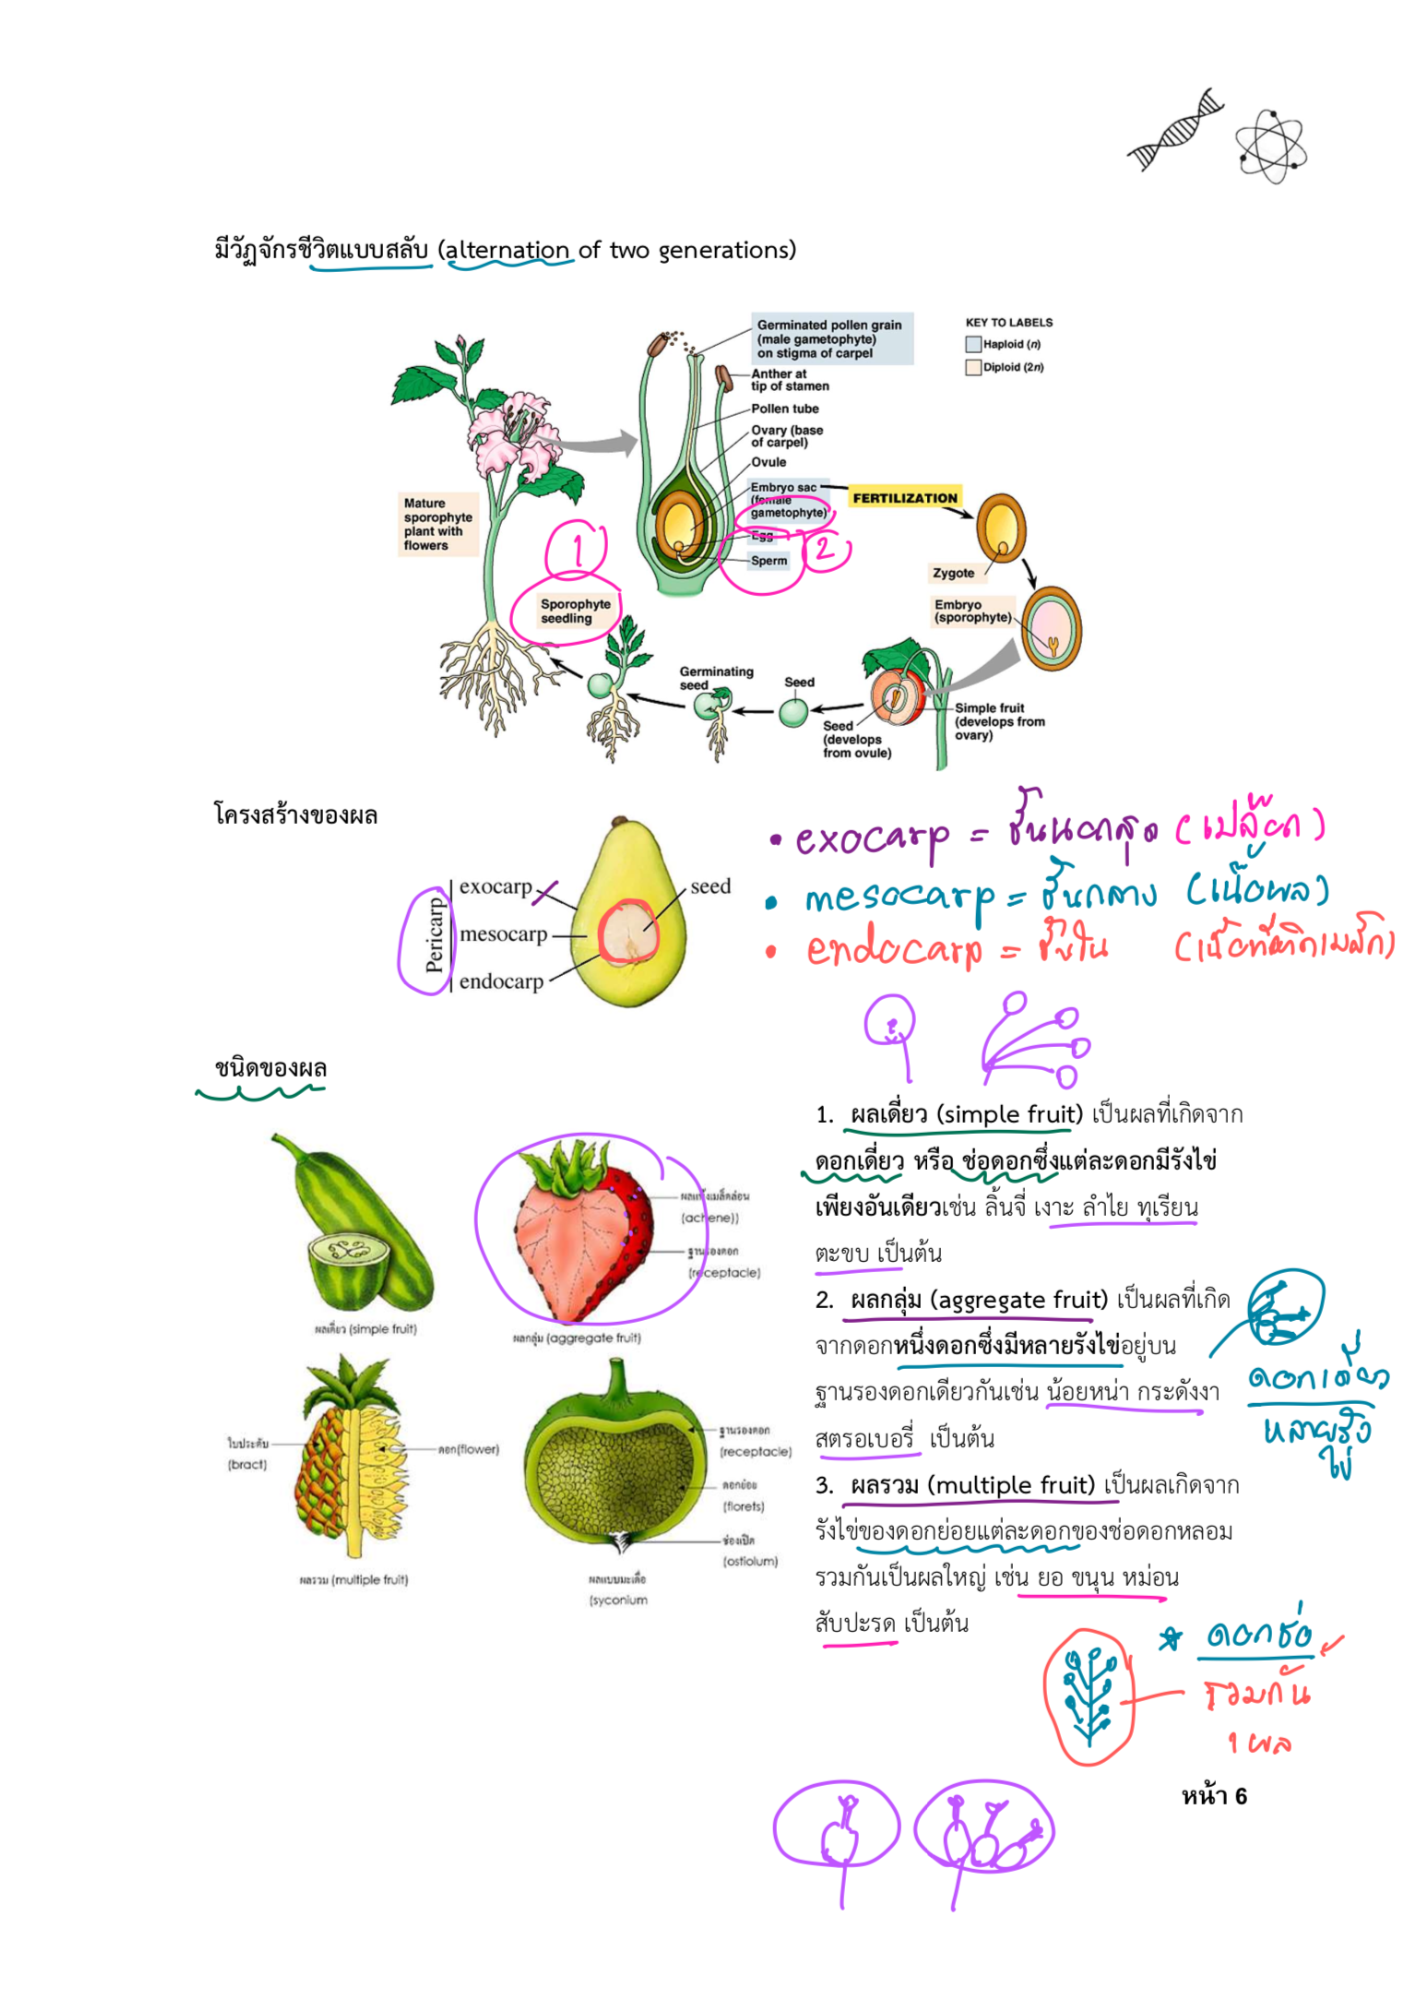 มีวัฏจักรชีวิตแบบสลับ (alternation of two generations)
Germinated pollen grain
(male gametophyte)
on stigma of carpel
Anther at
tip of stamen
Pollen tube
Ovary (base
of carpel)
Ovule
Embryo sac
(female
gametophyte)
Egg
Sperm
KEY TO LABELS
Haploid (n)
Diploid (2n)
FERTILIZATION
Mature
sporophyte
plant with
flowers
1
2
Sporophyte
seedling
Zygote
Embryo
(sporophyte)
Germinating
seed
Seed
Seed
(develops
from ovule)
Simple fruit
(develops from
ovary)
โครงสร้างของผล
Pericarp
exocarp
mesocarp
endocarp
seed
• exocarp = ชั้นนอกสุด (เปลือก)
• mesocarp = ชั้นกลาง (เนื้อผล)
• endocarp = ชั้นใน (เนื้อที่ติดเมล็ด)
ชนิดของผล
ผลเดี่ยว (simple fruit)
ผลแห้งเมล็ดล่อน
(achene))
ฐานรองดอก
(receptacle)
ผลกลุ่ม (aggregate fruit)
ใบประดับ
(bract)
ดอก(flower)
ผลรวม (multiple fruit)
ฐานรองดอก
(receptacle)
ดอกย่อย
(florets)
ช่องเปิด
(ostiolum)
ผลแบบมะเดื่อ
(syconium
1. ผลเดี่ยว (simple fruit) เป็นผลที่เกิดจาก
ดอกเดี่ยว หรือ ช่อดอกซึ่งแต่ละดอกมีรังไข่
เพียงอันเดียวเช่น ลิ้นจี่ เงาะ ลำไย ทุเรียน
ตะขบ เป็นต้น
2. ผลกลุ่ม (aggregate fruit) เป็นผลที่เกิด
จากดอกหนึ่งดอกซึ่งมีหลายรังไข่อยู่บน
ฐานรองดอกเดียวกันเช่น น้อยหน่า กระดังงา
สตรอเบอรี่ เป็นต้น
ดอกเดี่ยว
หลายรัง
ไข่
3. ผลรวม (multiple fruit) เป็นผลเกิดจาก
รังไข่ของดอกย่อยแต่ละดอกของช่อดอกหลอม
รวมกันเป็นผลใหญ่ เช่น ยอ ขนุน หม่อน
สับปะรด เป็นต้น
ดอกช่อ
รวมกัน
1 ผล
หน้า 6